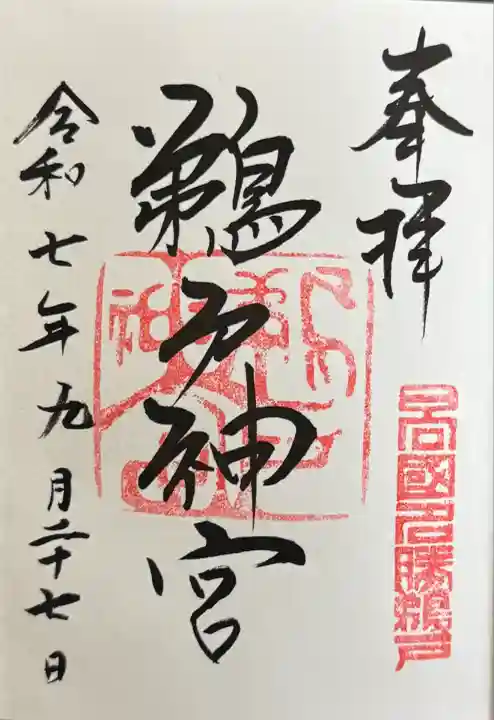 奉拝
日向國名勝鵜戸
鵜戸神宮
令和七年九月二十七日